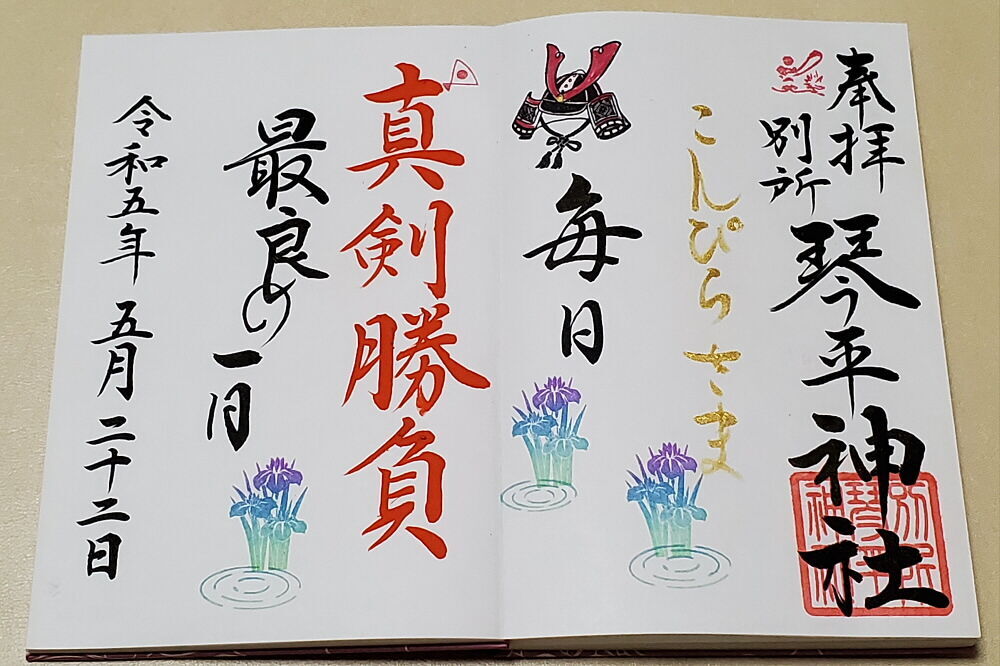 奉拝
別所
琴平神社
別所
琴平
神社
こんぴらさま
毎日
真剣勝負
最良の
一日
令和五年 五月 二十二日